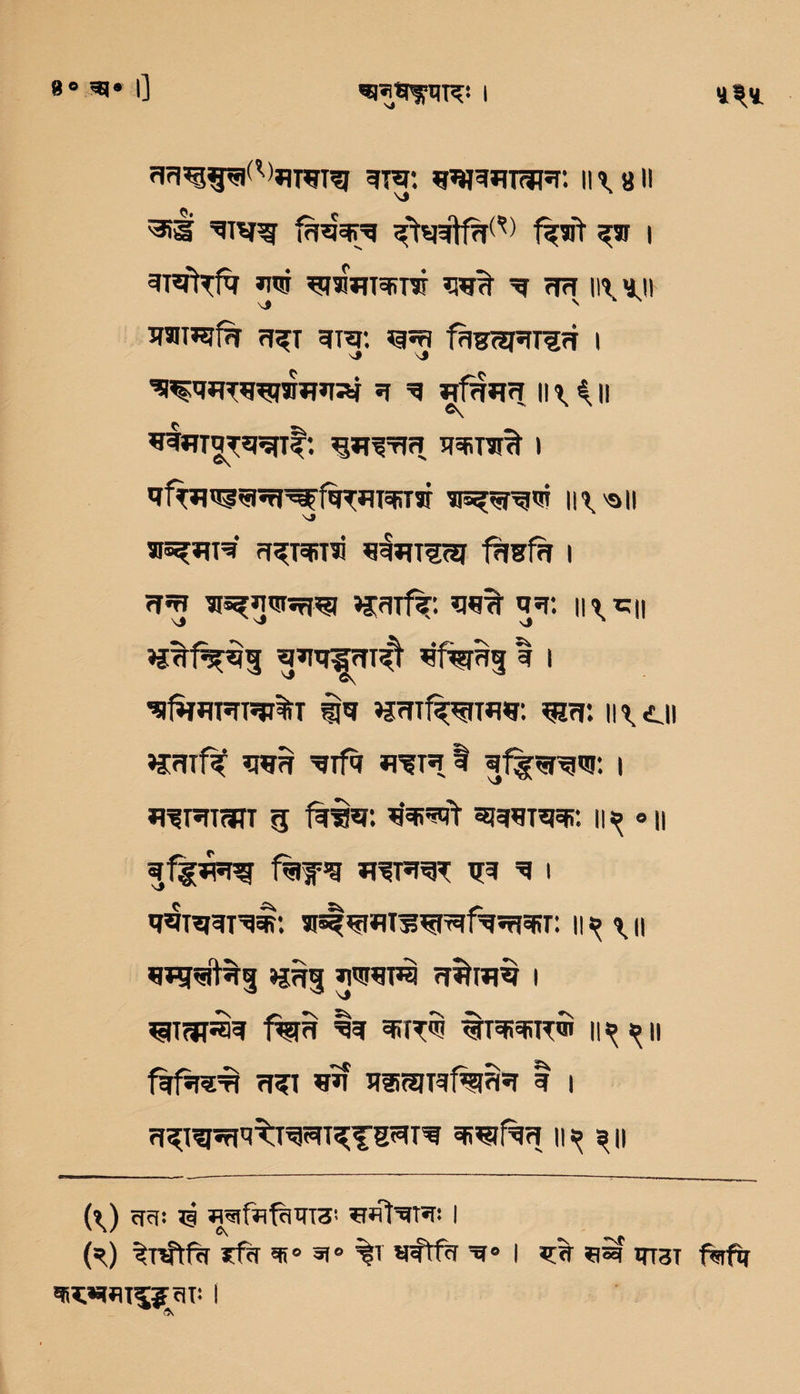 ४० अ० ।] ५३५
ततस्तु मूल(१)मासाद्य वायुः सम्भवमात्मनः ॥१४॥
ऊर्द्ध्वं चाधश्च तिर्यक्च दोधवीति(२) दिशो दश ।
वायोरपि गुणं स्पर्शमाकाशं ग्रसते च तत् ॥१५॥
प्रशाम्यति तदा वायुः खन्तु तिष्ठत्यनावृतं ।
अरूपमरसस्पर्शमगन्धं न च मूर्त्तिमत् ॥१६॥
सर्व्वमापूरयच्छब्दैः सुमहत्तत् प्रकाशते ।
परिमण्डलन्तच्छुषिरमाकाशं शब्दलक्षणं ॥१७॥
शब्दमात्रं तदाकाशं सर्व्वमावृत्य तिष्ठति ।
तन्तु शब्दगुणन्तस्य भूतादिः ग्रसते पुनः ॥१८॥
भूतेन्द्रियेषु युगपद्भूतादौ संस्थितेषु वै ।
अभिमानात्मको ह्येष भूतादिस्तामसः स्मृतः ॥१९॥
भूतादिं ग्रसते चापि महान् वै बुद्धिलक्षणः ।
महानात्मा तु विज्ञेयः सङ्कल्पो व्यवसायकः ॥२०॥
बुद्धिर्मनश्च लिङ्गश्च महानक्षर एव च ।
पर्य्यायवाचकैः शब्दैस्तमाहुस्तत्त्वचिन्तकाः ॥२१॥
सम्प्रलीनेषु भूतेषु गुणसाम्ये तमोमये ।
स्वात्मन्येव स्थिते चैव कारणे लोककारणे ॥२२॥
विनिवृत्ते तदा सर्गे प्रकृत्यावस्थितेन वै ।
तदाद्यन्तपरोक्षत्वाददृष्टत्वाच्च कस्यचित् ॥२३॥
(१) ततः स मूलमितिपाठः समीचीनः ।
(२) दोध्रीति इति क० ज० हो धवीति च० । इमे सर्व्वे पाठा लिपिकरप्रमाददुष्टाः ।